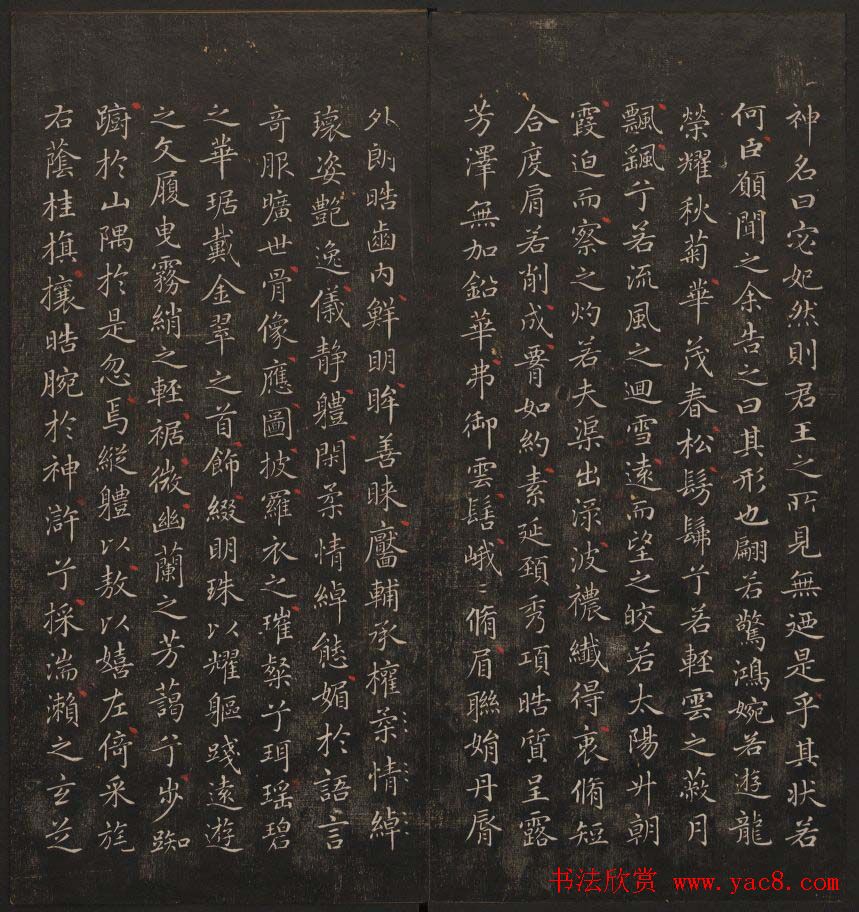 神名曰宓妃然則君王之所見無迺是乎其狀若
何臣願聞之余告之曰其形也翩若驚鴻婉若遊龍
榮耀秋菊華茂春松髣髴兮若輕雲之蔽月
飄飖兮若流風之迴雪遠而望之皎若太陽升朝
霞迫而察之灼若夫渠出淥波襛纖得衷脩短
合度肩若削成腰如約素延頸秀項晧質呈露
芳澤無加鉛華弗御雲髻峨〻脩眉聯娟丹脣
外朗晧齒內鮮明眸善睞靨輔承權柔情綽
瓌姿艷逸儀靜體閑柔情綽態媚於語言
奇服曠世骨像應圖披羅衣之璀粲兮珥瑤碧
之華琚戴金翠之首飾綴明珠以耀軀踐遠遊
之文履曳霧綃之輕裾微幽蘭之芳藹兮步踟
躕於山隅於是忽焉縱體以敖以嬉左倚采旄
右蔭桂旗攘晧腕於神滸兮採湍瀨之玄芝
书法欣赏 www.yac8.com